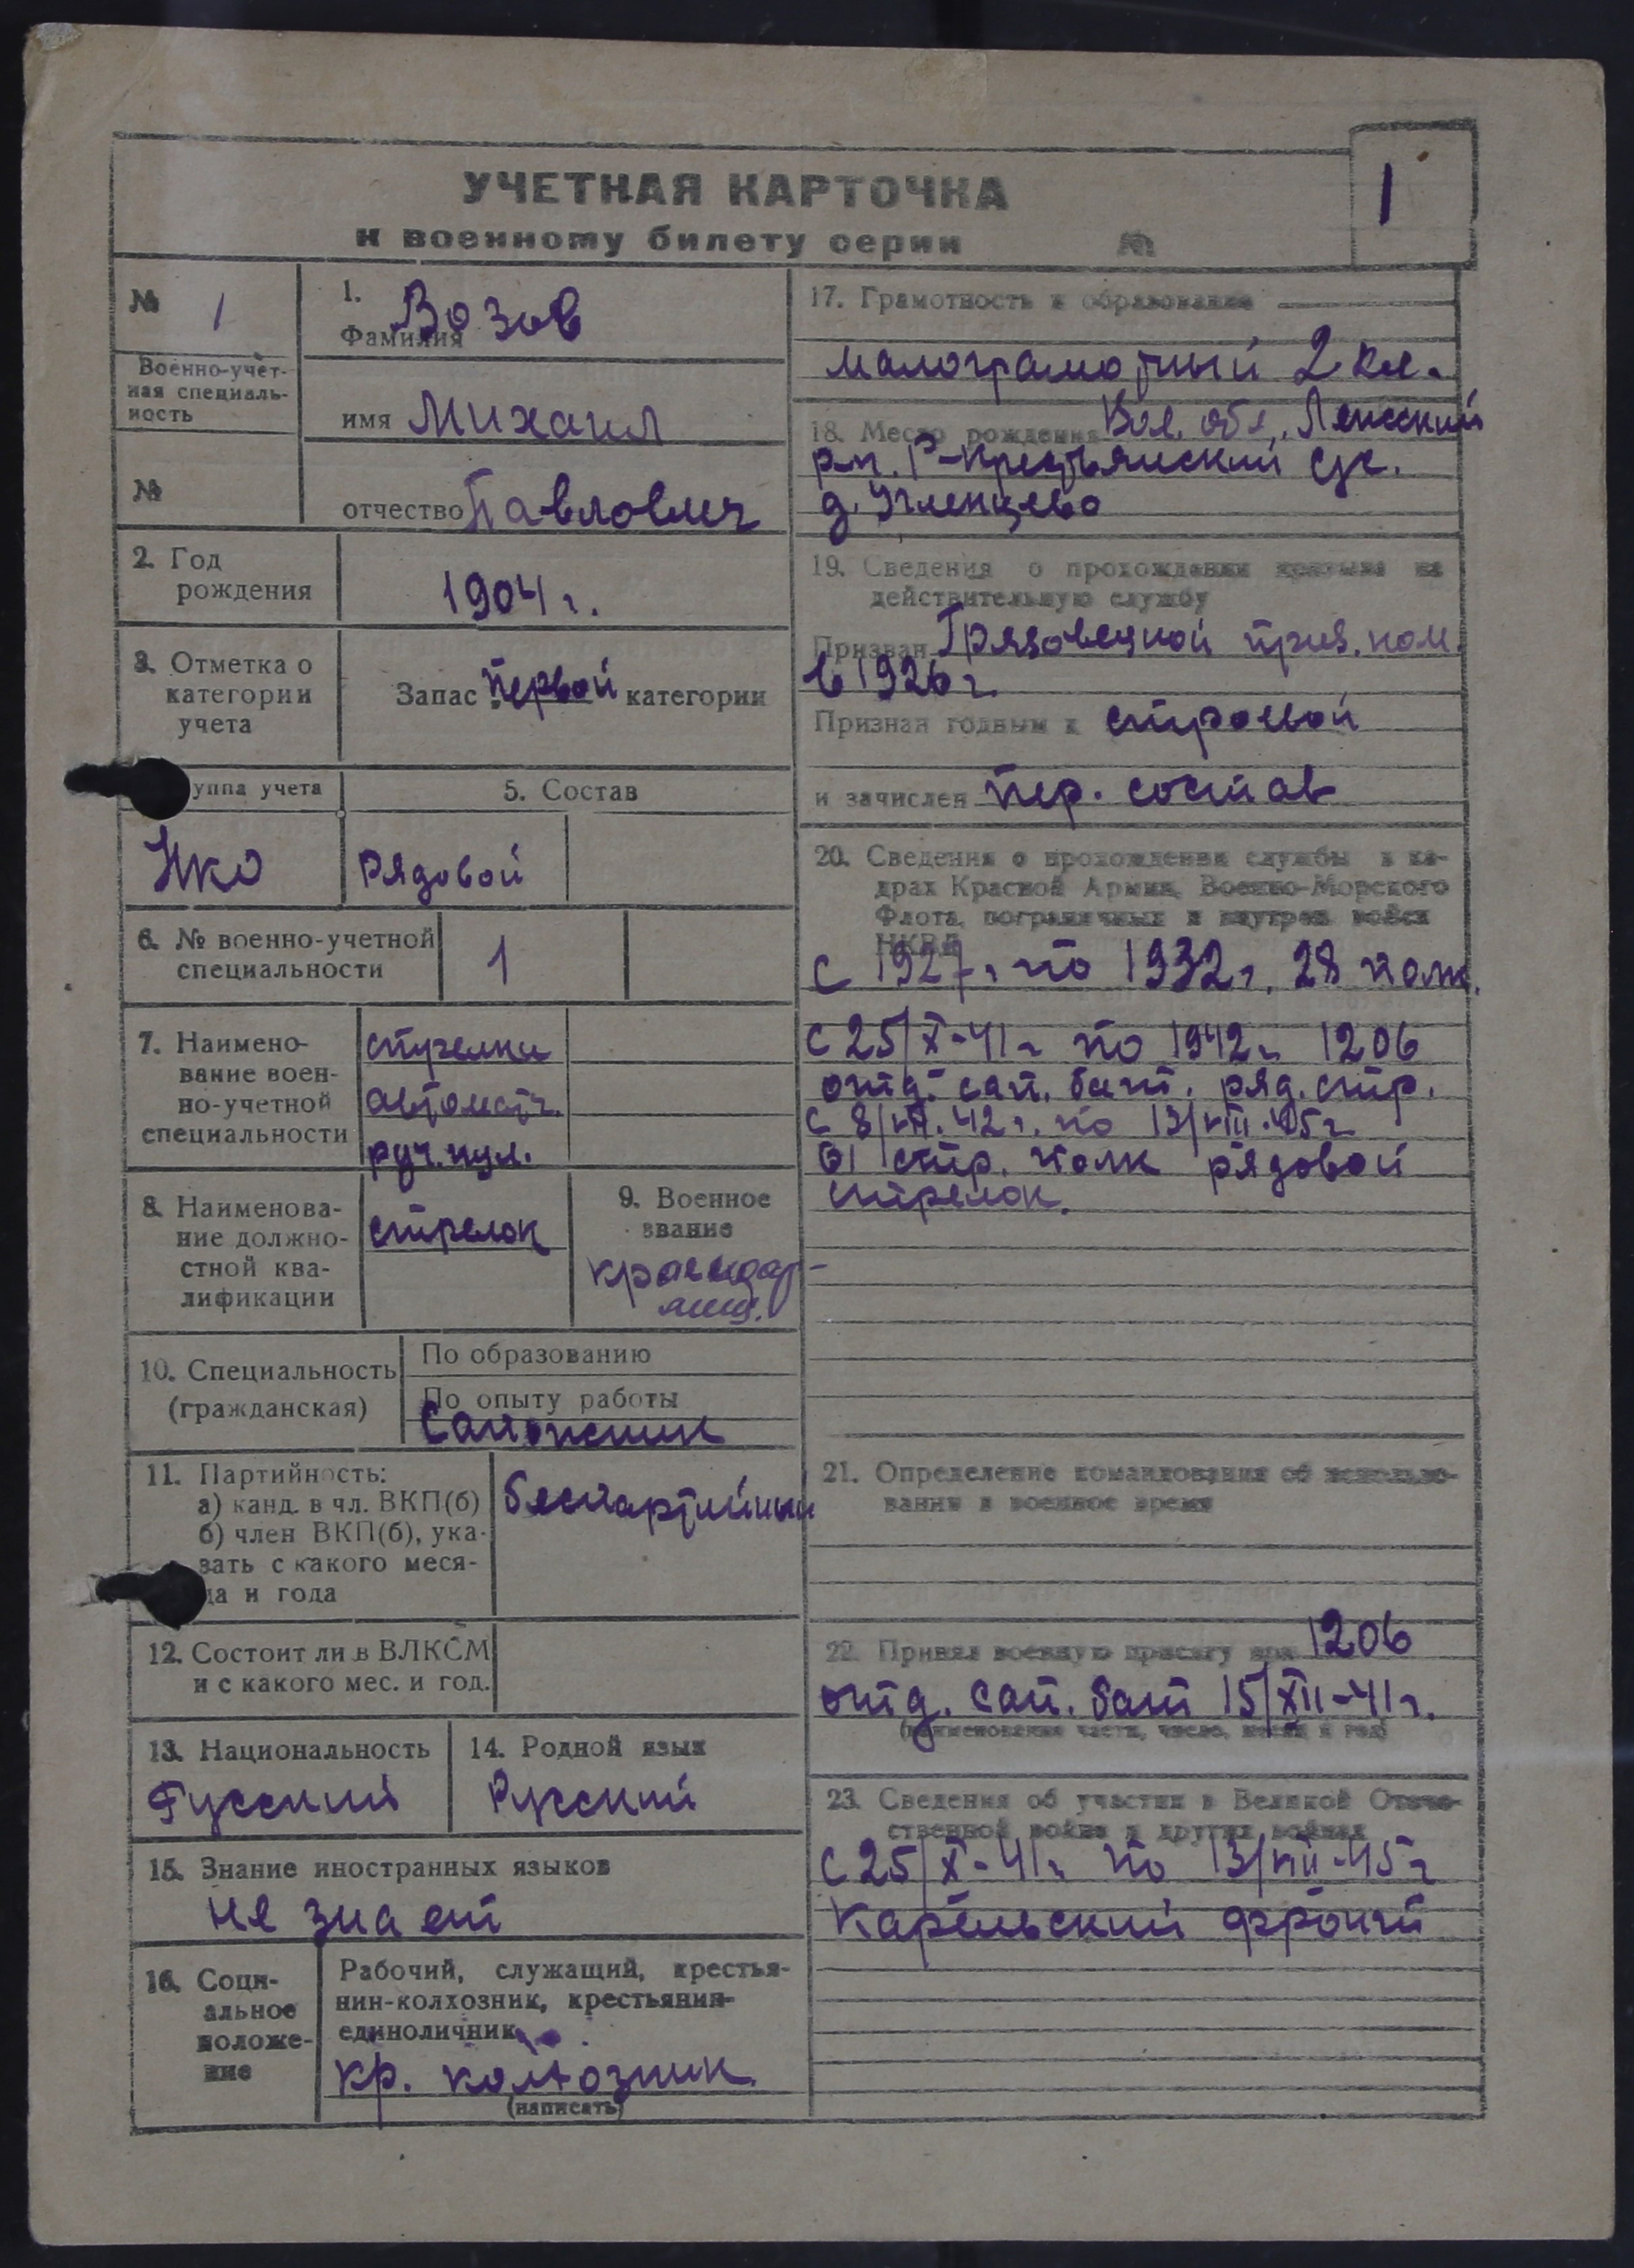 УЧЕТНАЯ КАРТОЧКА
к военному билету серии №
1
№ 1
Военно-учет-
ная специаль-
ность
№
1.
Фамилия Возов
имя Михаил
отчество Павлович
2. Год
рождения
1904 г.
3. Отметка о
категории
учета
Запас первой категории
уппа учета
НКО
5. Состав
рядовой
6. № военно-учетной
специальности
1
7. Наимено-
вание воен-
но-учетной
специальности
стрелки
автоматч.
руч. пул.
8. Наименова-
ние должно-
стной ква-
лификации
стрелок
9. Военное
звание
10. Специальность
(гражданская)
По образованию
По опыту работы
Сапожник
11. Партийность:
а) канд. в чл. ВКП(б)
б) член ВКП(б), ука-
зать с какого меся-
ца и года
беспартийный
12. Состоит ли в ВЛКСМ
и с какого мес. и год.
13. Национальность
Русский
14. Родной язык
Русский
15. Знание иностранных языков
не знает
16. Соци-
альное
положе-
ние
Рабочий, служащий, крестья-
нин-колхозник, крестьянин-
единоличник
кр. колхозник
(написать)
17. Грамотность и образование
малограмотный 2 кл.
18. Место рождения Вол. обл., Лежский
р-н. Р-Крестьянский с/с.
д. Угленцево
19. Сведения о прохождении призыва на
действительную службу
Призван Грязовецкой приз. ком.
в 1926 г.
Признан годным к строевой
и зачислен пер. состав
20. Сведения о прохождении службы в ка-
драх Красной Армии, Военно-Морского
Флота, пограничных и внутрен. войск
НКВД
с 1927 г. по 1932 г. 28 полк.
с 25/X-41 г по 1942 г. 1206
отд. сап. бат. ряд. стр.
61 стр. полк рядовой
стрелок.
21. Определение командования об использо-
вании в военное время
22. Принял военную присягу при 1206
отд. сап. бат 15/XII-41 г.
(наименование части, число, месяц и год)
23. Сведения об участии в Великой Отече-
ственной войне и других войнах
с 25/X-41 г по 13/VIII-45 г
Карельский фронт